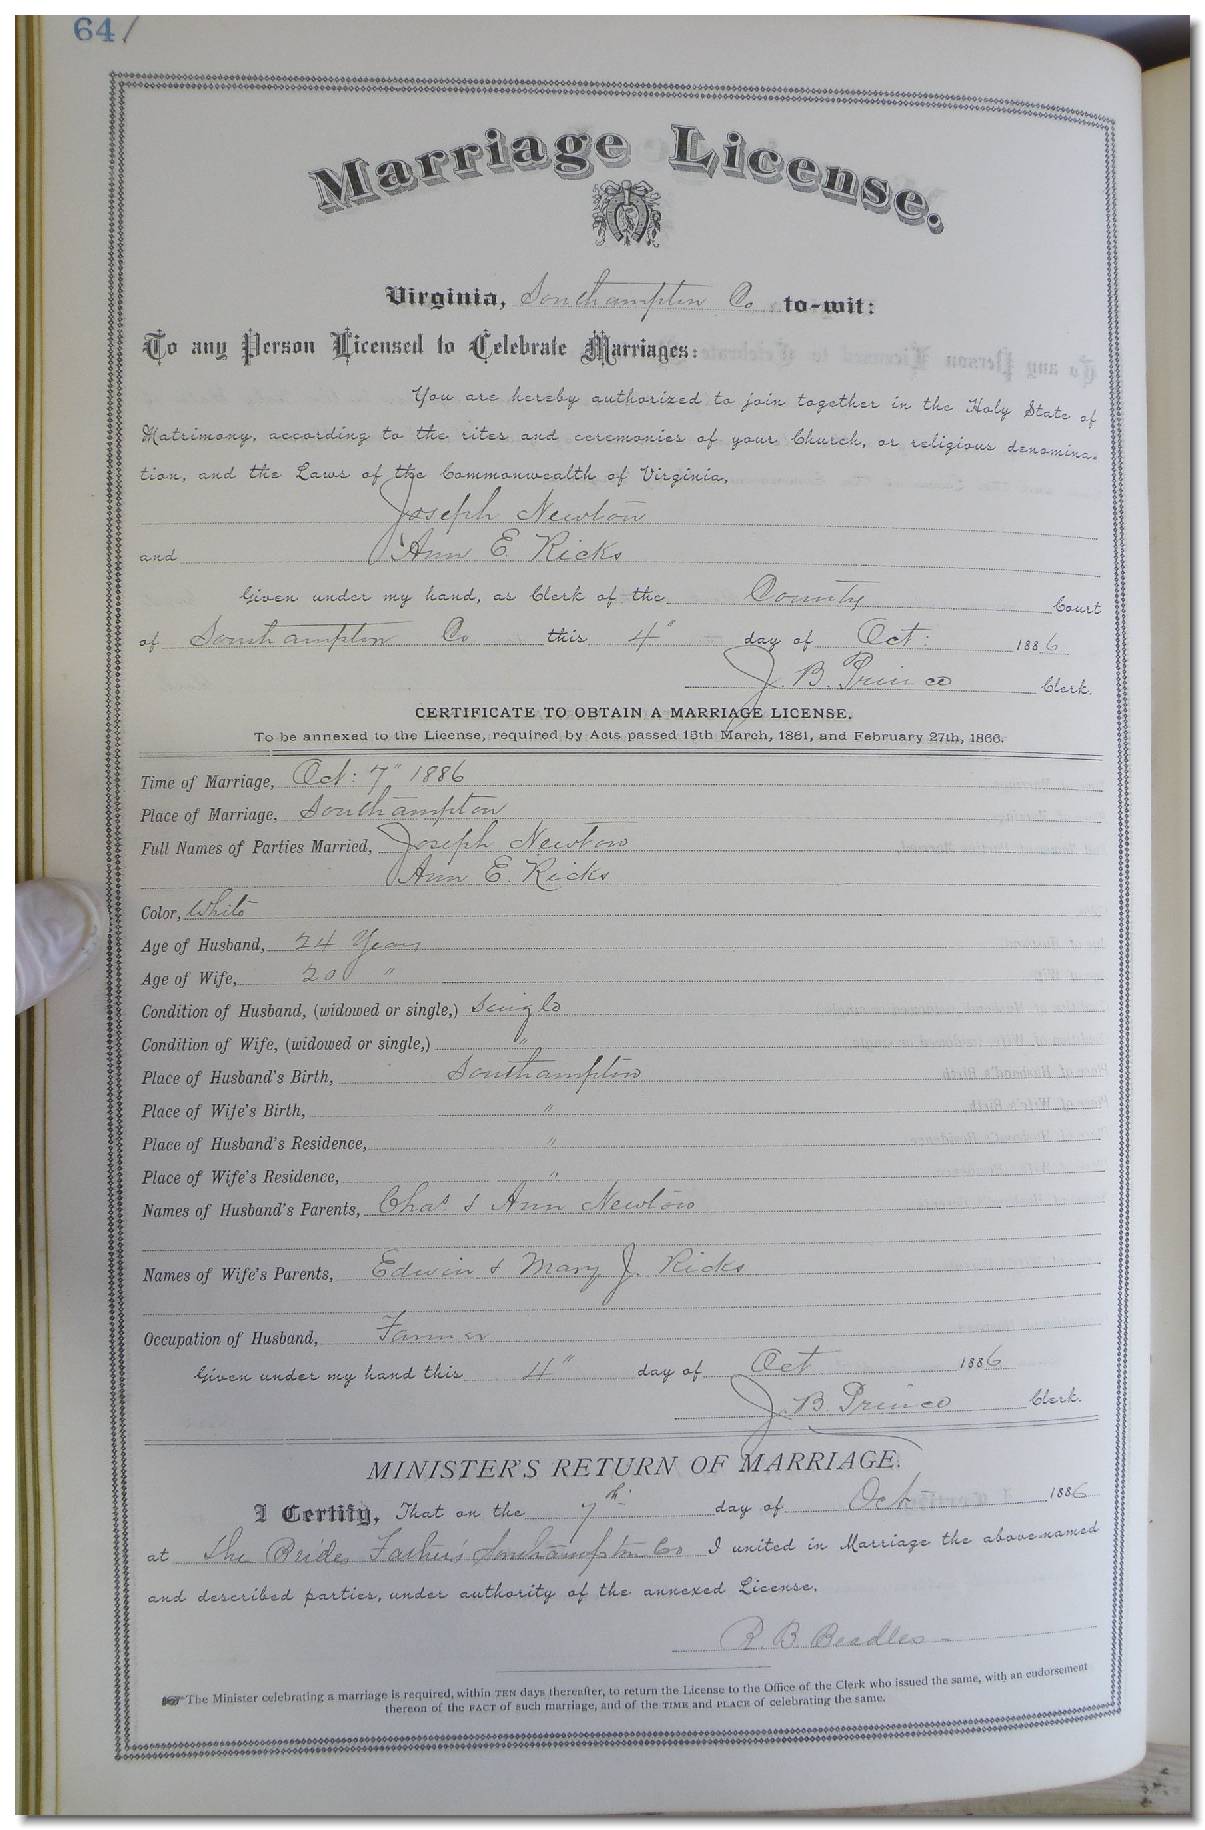 64/
Marriage License.
Virginia, Southampton Co to-wit:
To any Person Licensed to Celebrate Marriages:
You are hereby authorized to join together in the Holy State of
Matrimony, according to the rites and ceremonies of your Church, or religious denomina-
tion, and the Laws of the Commonwealth of Virginia,
Joseph Newton
and Ann E. Ricks
Given under my hand, as Clerk of the County Court
of Southampton Co this 4" day of Oct: 1886
J. B. Prince Clerk.
CERTIFICATE TO OBTAIN A MARRIAGE LICENSE.
To be annexed to the License, required by Acts passed 15th March, 1861, and February 27th, 1866.
Time of Marriage, Oct: 7" 1886
Place of Marriage, Southampton
Full Names of Parties Married, Joseph Newton
Ann E. Ricks
Color, White
Age of Husband, 24 Years
Age of Wife, 20 "
Condition of Husband, (widowed or single,) Single
Condition of Wife, (widowed or single,) "
Place of Husband's Birth, Southampton
Place of Wife's Birth, "
Place of Husband's Residence, "
Place of Wife's Residence, "
Names of Husband's Parents, Chas. & Ann Newton
Names of Wife's Parents, Edwin & Mary J. Ricks
Occupation of Husband, Farmer
Given under my hand this 4" day of Oct 1886
J. B. Prince Clerk.
MINISTER'S RETURN OF MARRIAGE.
I Certify, That on the 7th day of Oct 1886
at The Brides Father's Southampton Co I united in Marriage the above-named
and described parties, under authority of the annexed License.
R. B. Beadles
The Minister celebrating a marriage is required, within TEN days thereafter, to return the License to the Office of the Clerk who issued the same, with an endorsement
thereon of the FACT of such marriage, and of the TIME and PLACE of celebrating the same.